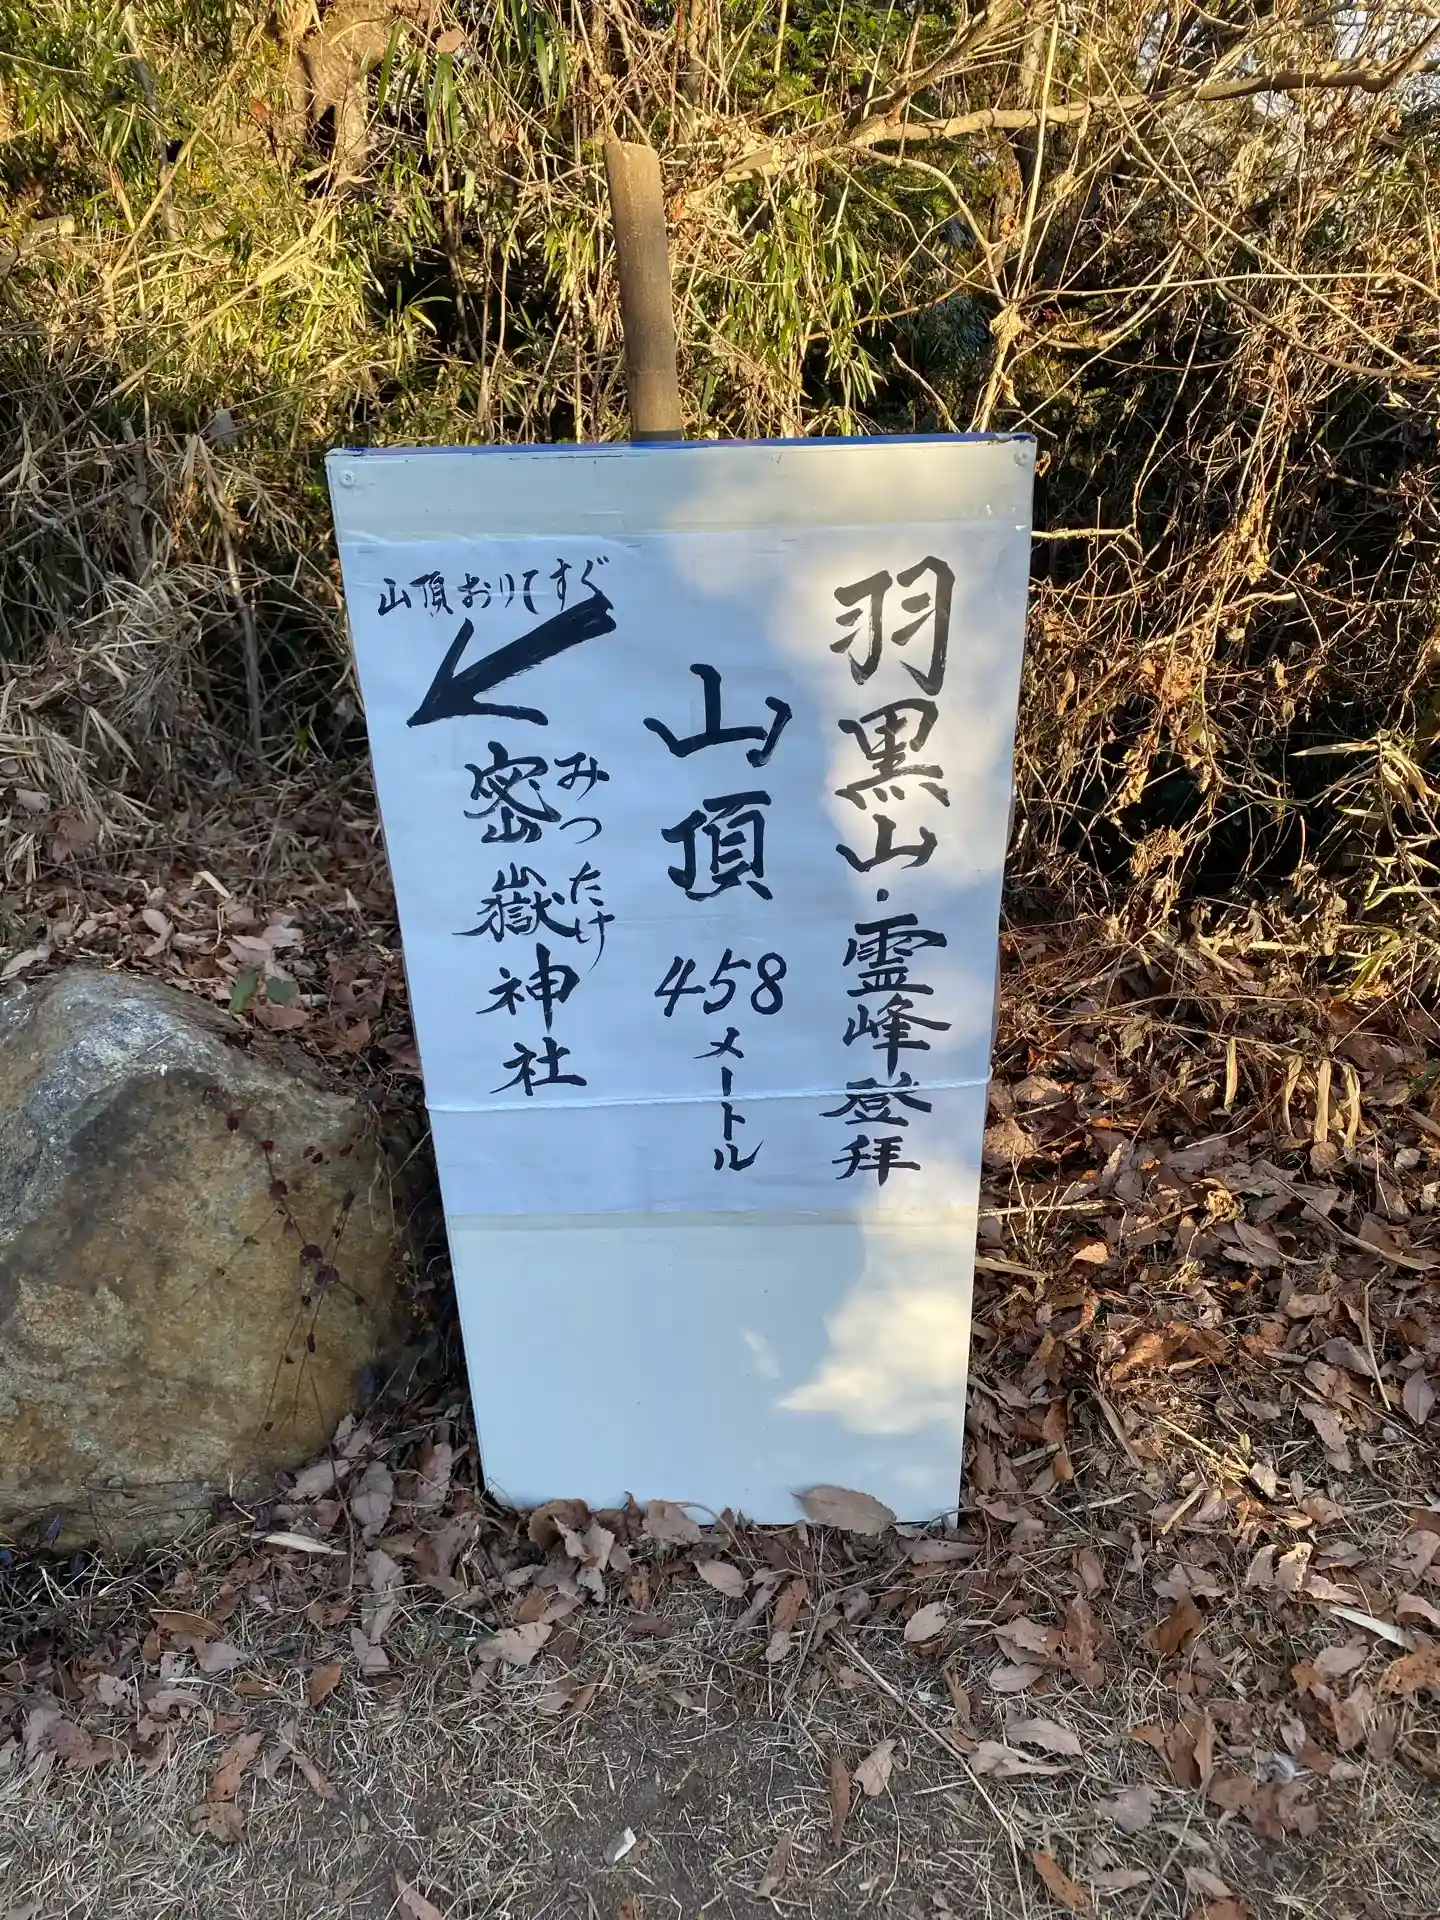 羽黒山・霊峰登拝
山頂
458
メートル
山頂おりてすぐ
密嶽神社
みつたけ